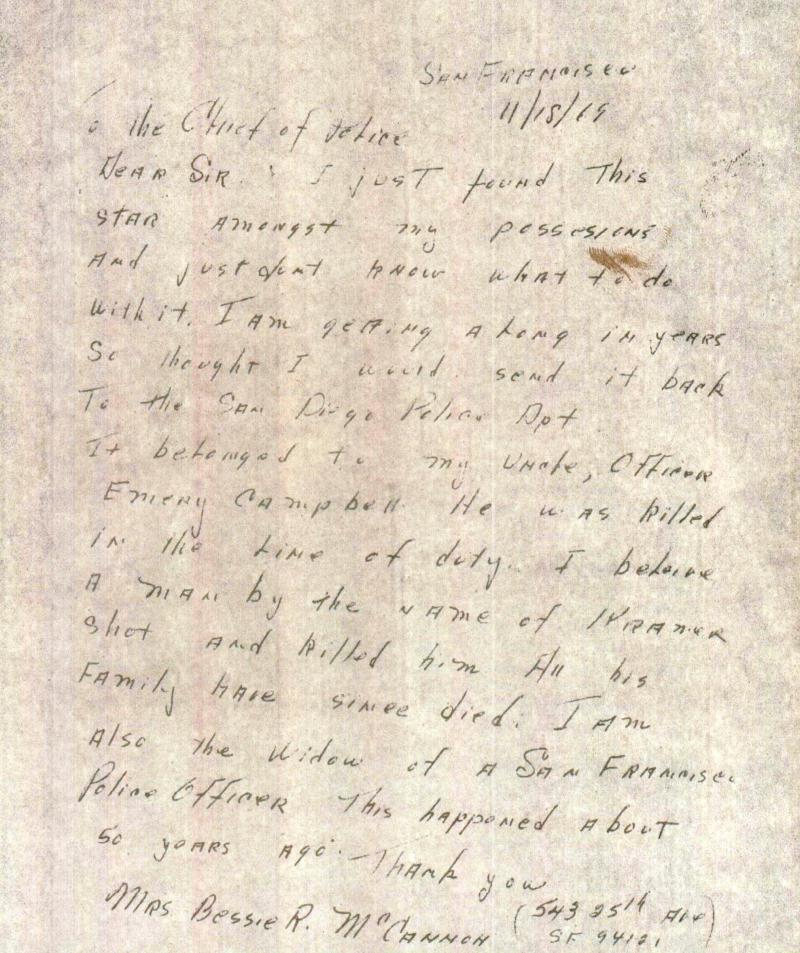 San Francisco
11/15/69
To the Chief of Police
Dear Sir: I just found this
star amongst my possesions
and just dont know what to do
with it. I am getting along in years
So thought I would send it back
To the San Diego Police Dpt
It belonged to my Uncle, Officer
Emery Campbell He was killed
in the line of duty. I beleive
a man by the name of Kramer
shot and killed him All his
Family have since died. I am
also the widow of a San Francisco
Police Officer This happened about
50 years ago. Thank you
Mrs Bessie R. McCannon (543 25th Ave)
SF 94121